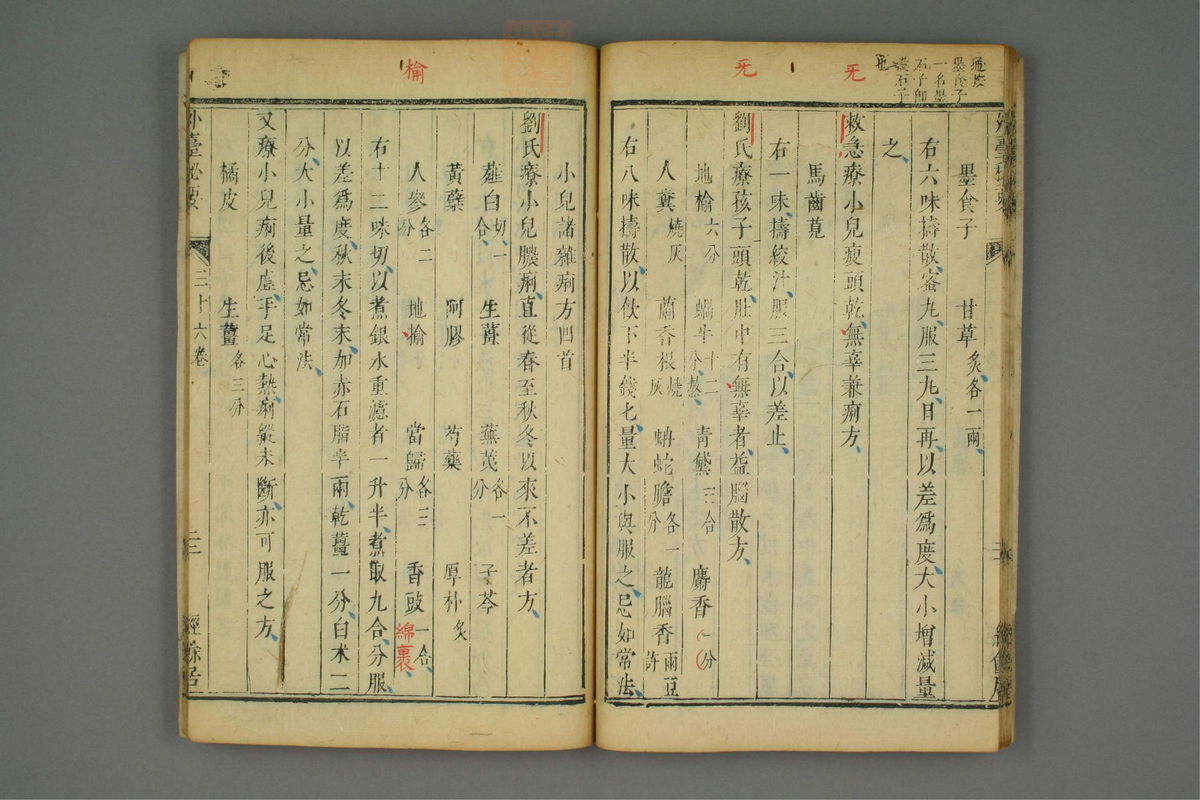 墨食子 甘草炙各一兩
右六味擣散蜜丸服三丸日再以差爲度大小增減量
之
救急療小兒瘦頭乾無辜兼痢方
馬齒莧
右一味擣絞汁服三合以差止
劉氏療孩子頭乾肚中有無辜者益腦散方
地榆六分 蝸牛十二分熬 青黛三合 麝香一分
人糞燒灰 蘭香根燒灰 蚺蛇膽各一分 龍腦香兩豆許
右八味擣散以飲下半錢匕量大小與服之忌如常法
小兒諸雜痢方四首
劉氏療小兒膿痢直從春至秋冬以來不差者方
薤白切一合 生薑 蕪荑各一分 子芩
黃蘗 阿膠 芍藥 厚朴炙
人參各二分 地揄 當歸各三分 香豉一合綿裹
右十二味切以煮銀水重濾者一升半煮取九合分服
以差爲度秋末冬末加赤石脂半兩乾薑一分白朮二
分大小量之忌如常法
又療小兒痢後虛手足心熱痢縱未斷亦可服之方
橘皮 生薑各三分
外臺秘要 三十六卷 三 經餘居
旡
旡
榆
墨食子
一名墨
石子